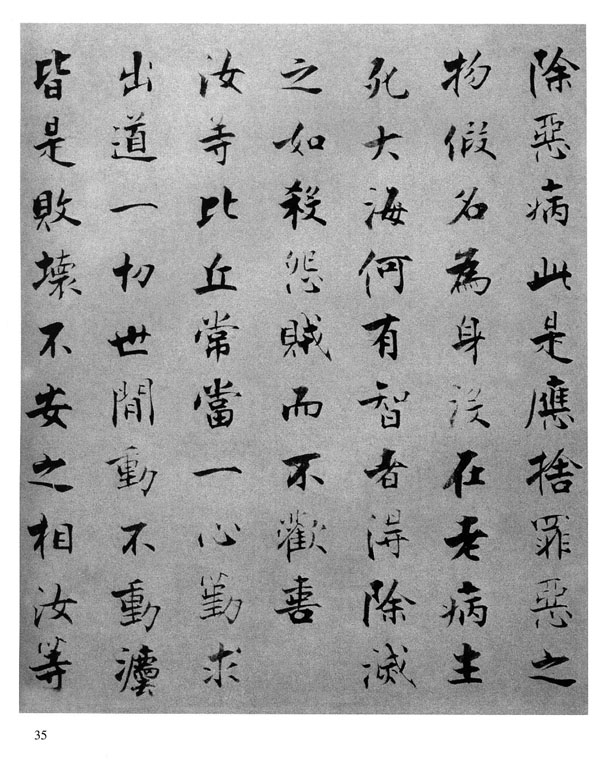 除惡病此是應捨罪惡之
物假名為身沒在老病生
死大海何有智者得除滅
之如殺怨賊而不歡喜
汝等比丘常當一心勤求
出道一切世閒動不動灋
皆是敗壞不安之相汝等
35